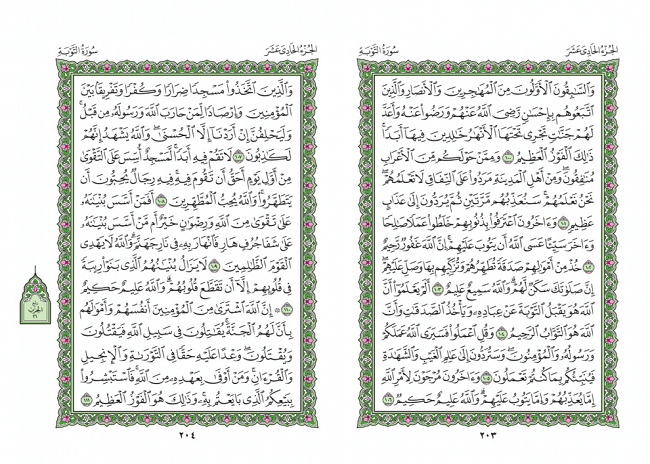 الجزء الحادي عشر
سورة التوبة
والسابقون الأولون من المهاجرين والأنصار والذين
اتبعوهم بإحسان رضي الله عنهم ورضوا عنه وأعد
لهم جنات تجري تحتها الأنهار خالدين فيها أبدا
ذلك الفوز العظيم ١٠٠ وممن حولكم من الأعراب
منافقون ومن أهل المدينة مردوا على النفاق لا تعلمهم
نحن نعلمهم سنعذبهم مرتين ثم يردون إلى عذاب
عظيم ١٠١ وآخرون اعترفوا بذنوبهم خلطوا عملا صالحا
وآخر سيئا عسى الله أن يتوب عليهم إن الله غفور رحيم
١٠٢ خذ من أموالهم صدقة تطهرهم وتزكيهم بها وصل عليهم
إن صلاتك سكن لهم والله سميع عليم ١٠٣ ألم يعلموا أن
الله هو يقبل التوبة عن عباده ويأخذ الصدقات وأن
الله هو التواب الرحيم ١٠٤ وقل اعملوا فسيرى الله عملكم
ورسوله والمؤمنون وستردون إلى عالم الغيب والشهادة
فينبئكم بما كنتم تعملون ١٠٥ وآخرون مرجون لأمر الله
إما يعذبهم وإما يتوب عليهم والله عليم حكيم ١٠٦
٢٠٣
الجزء الحادي عشر
سورة التوبة
والذين اتخذوا مسجدا ضرارا وكفرا وتفريقا بين
المؤمنين وإرصادا لمن حارب الله ورسوله من قبل
وليحلفن إن أردنا إلا الحسنى والله يشهد إنهم
لكاذبون ١٠٧ لا تقم فيه أبدا لمسجد أسس على التقوى
من أول يوم أحق أن تقوم فيه فيه رجال يحبون أن
يتطهروا والله يحب المطهرين ١٠٨ أفمن أسس بنيانه
على تقوى من الله ورضوان خير أم من أسس بنيانه
على شفا جرف هار فانهار به في نار جهنم والله لا يهدي
القوم الظالمين ١٠٩ لا يزال بنيانهم الذي بنوا ريبة
في قلوبهم إلا أن تقطع قلوبهم والله عليم حكيم
١١٠ ۞ إن الله اشترى من المؤمنين أنفسهم وأموالهم
بأن لهم الجنة يقاتلون في سبيل الله فيقتلون
ويقتلون وعدا عليه حقا في التوراة والإنجيل
والقرآن ومن أوفى بعهده من الله فاستبشروا
ببيعكم الذي بايعتم به وذلك هو الفوز العظيم ١١١
٢٠٤
الحزب
٢١